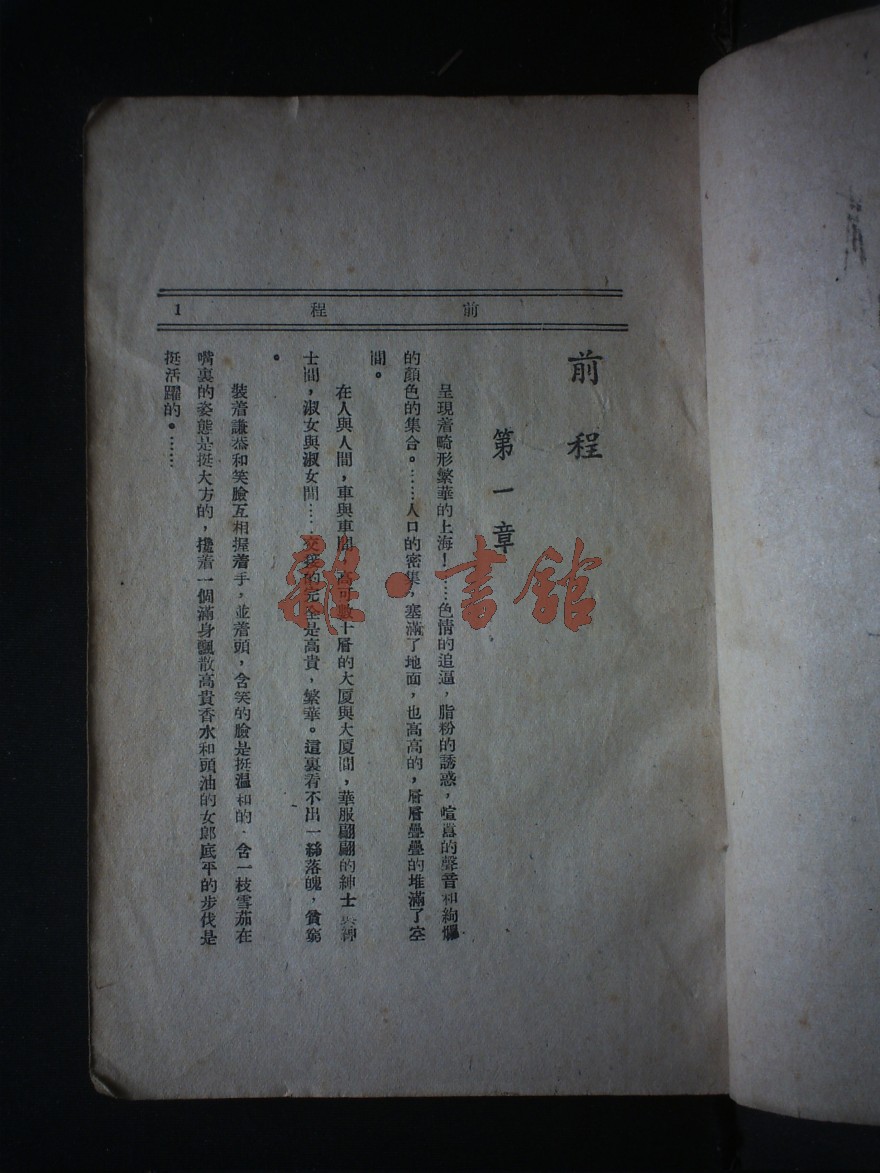 前程
1
前程
第一章
呈現着畸形繁華的上海！……色情的追逼，脂粉的誘惑，喧囂的聲音和絢爛
的顏色的集合。……人口的密集，塞滿了地面，也高高的，層層疊疊的堆滿了空
間。
在人與人間，車與車間，高可數十層的大厦與大厦間，華服翩翩的紳士與紳
士間，淑女與淑女間……交接的完全是高貴，繁華。這裏看不出一絲落魄，貧窮
。
裝着謙恭和笑臉互相握着手，並着頭，含笑的臉是挺温和的，含一枝雪茄在
嘴裏的姿態是挺大方的，攙着一個滿身飄散高貴香水和頭油的女郎底平的步伐是
挺活躍的。……
雜·書館